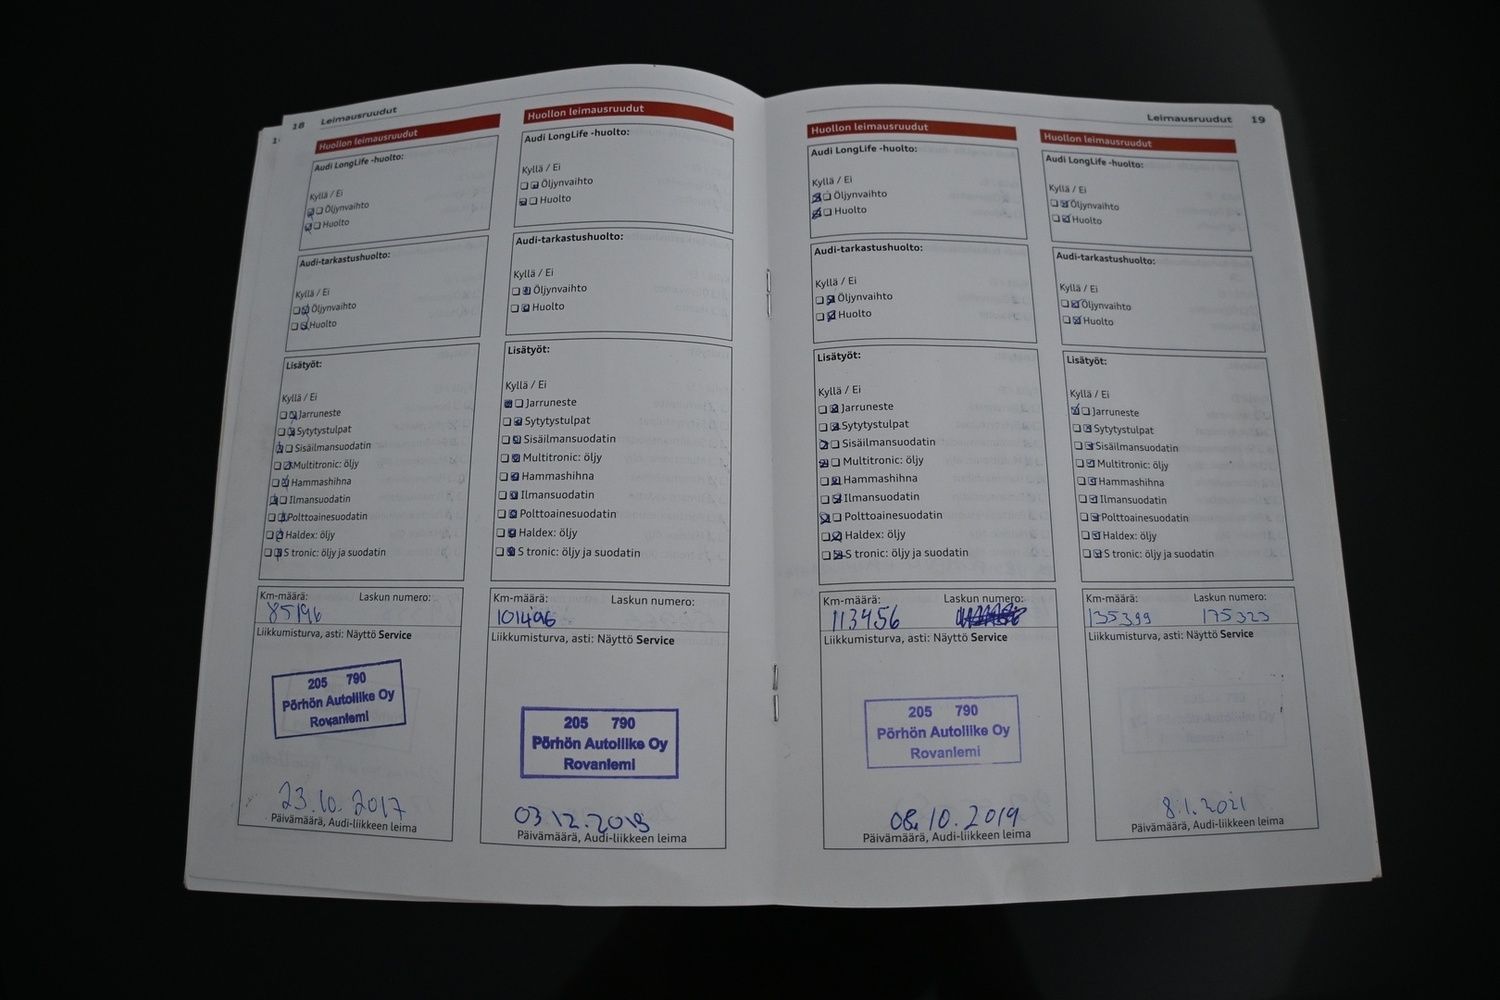 18 Leimausruudut
Huollon leimausruudut
Audi LongLife -huolto:
Kyllä / Ei
Öljynvaihto
Huolto
Audi-tarkastushuolto:
Kyllä / Ei
Öljynvaihto
Huolto
Lisätyöt:
Kyllä / Ei
Jarruneste
Sytytystulpat
Sisäilmansuodatin
Multitronic: öljy
Hammashihna
Ilmansuodatin
Polttoainesuodatin
Haldex: öljy
S tronic: öljy ja suodatin
Km-määrä: Laskun numero:
85196
Liikkumisturva, asti: Näyttö Service
205 790
Pörhön Autoliike Oy
Rovaniemi
23.10.2017
Päivämäärä, Audi-liikkeen leima
Huollon leimausruudut
Audi LongLife -huolto:
Kyllä / Ei
Öljynvaihto
Huolto
Audi-tarkastushuolto:
Kyllä / Ei
Öljynvaihto
Huolto
Lisätyöt:
Kyllä / Ei
Jarruneste
Sytytystulpat
Sisäilmansuodatin
Multitronic: öljy
Hammashihna
Ilmansuodatin
Polttoainesuodatin
Haldex: öljy
S tronic: öljy ja suodatin
Km-määrä: Laskun numero:
101496
Liikkumisturva, asti: Näyttö Service
205 790
Pörhön Autoliike Oy
Rovaniemi
03.12.2018
Päivämäärä, Audi-liikkeen leima
Leimausruudut 19
Huollon leimausruudut
Audi LongLife -huolto:
Kyllä / Ei
Öljynvaihto
Huolto
Audi-tarkastushuolto:
Kyllä / Ei
Öljynvaihto
Huolto
Lisätyöt:
Kyllä / Ei
Jarruneste
Sytytystulpat
Sisäilmansuodatin
Multitronic: öljy
Hammashihna
Ilmansuodatin
Polttoainesuodatin
Haldex: öljy
S tronic: öljy ja suodatin
Km-määrä: Laskun numero:
113456
Liikkumisturva, asti: Näyttö Service
205 790
Pörhön Autoliike Oy
Rovaniemi
08.10.2019
Päivämäärä, Audi-liikkeen leima
Huollon leimausruudut
Audi LongLife -huolto:
Kyllä / Ei
Öljynvaihto
Huolto
Audi-tarkastushuolto:
Kyllä / Ei
Öljynvaihto
Huolto
Lisätyöt:
Kyllä / Ei
Jarruneste
Sytytystulpat
Sisäilmansuodatin
Multitronic: öljy
Hammashihna
Ilmansuodatin
Polttoainesuodatin
Haldex: öljy
S tronic: öljy ja suodatin
Km-määrä: Laskun numero:
135399 175323
Liikkumisturva, asti: Näyttö Service
8.1.2021
Päivämäärä, Audi-liikkeen leima